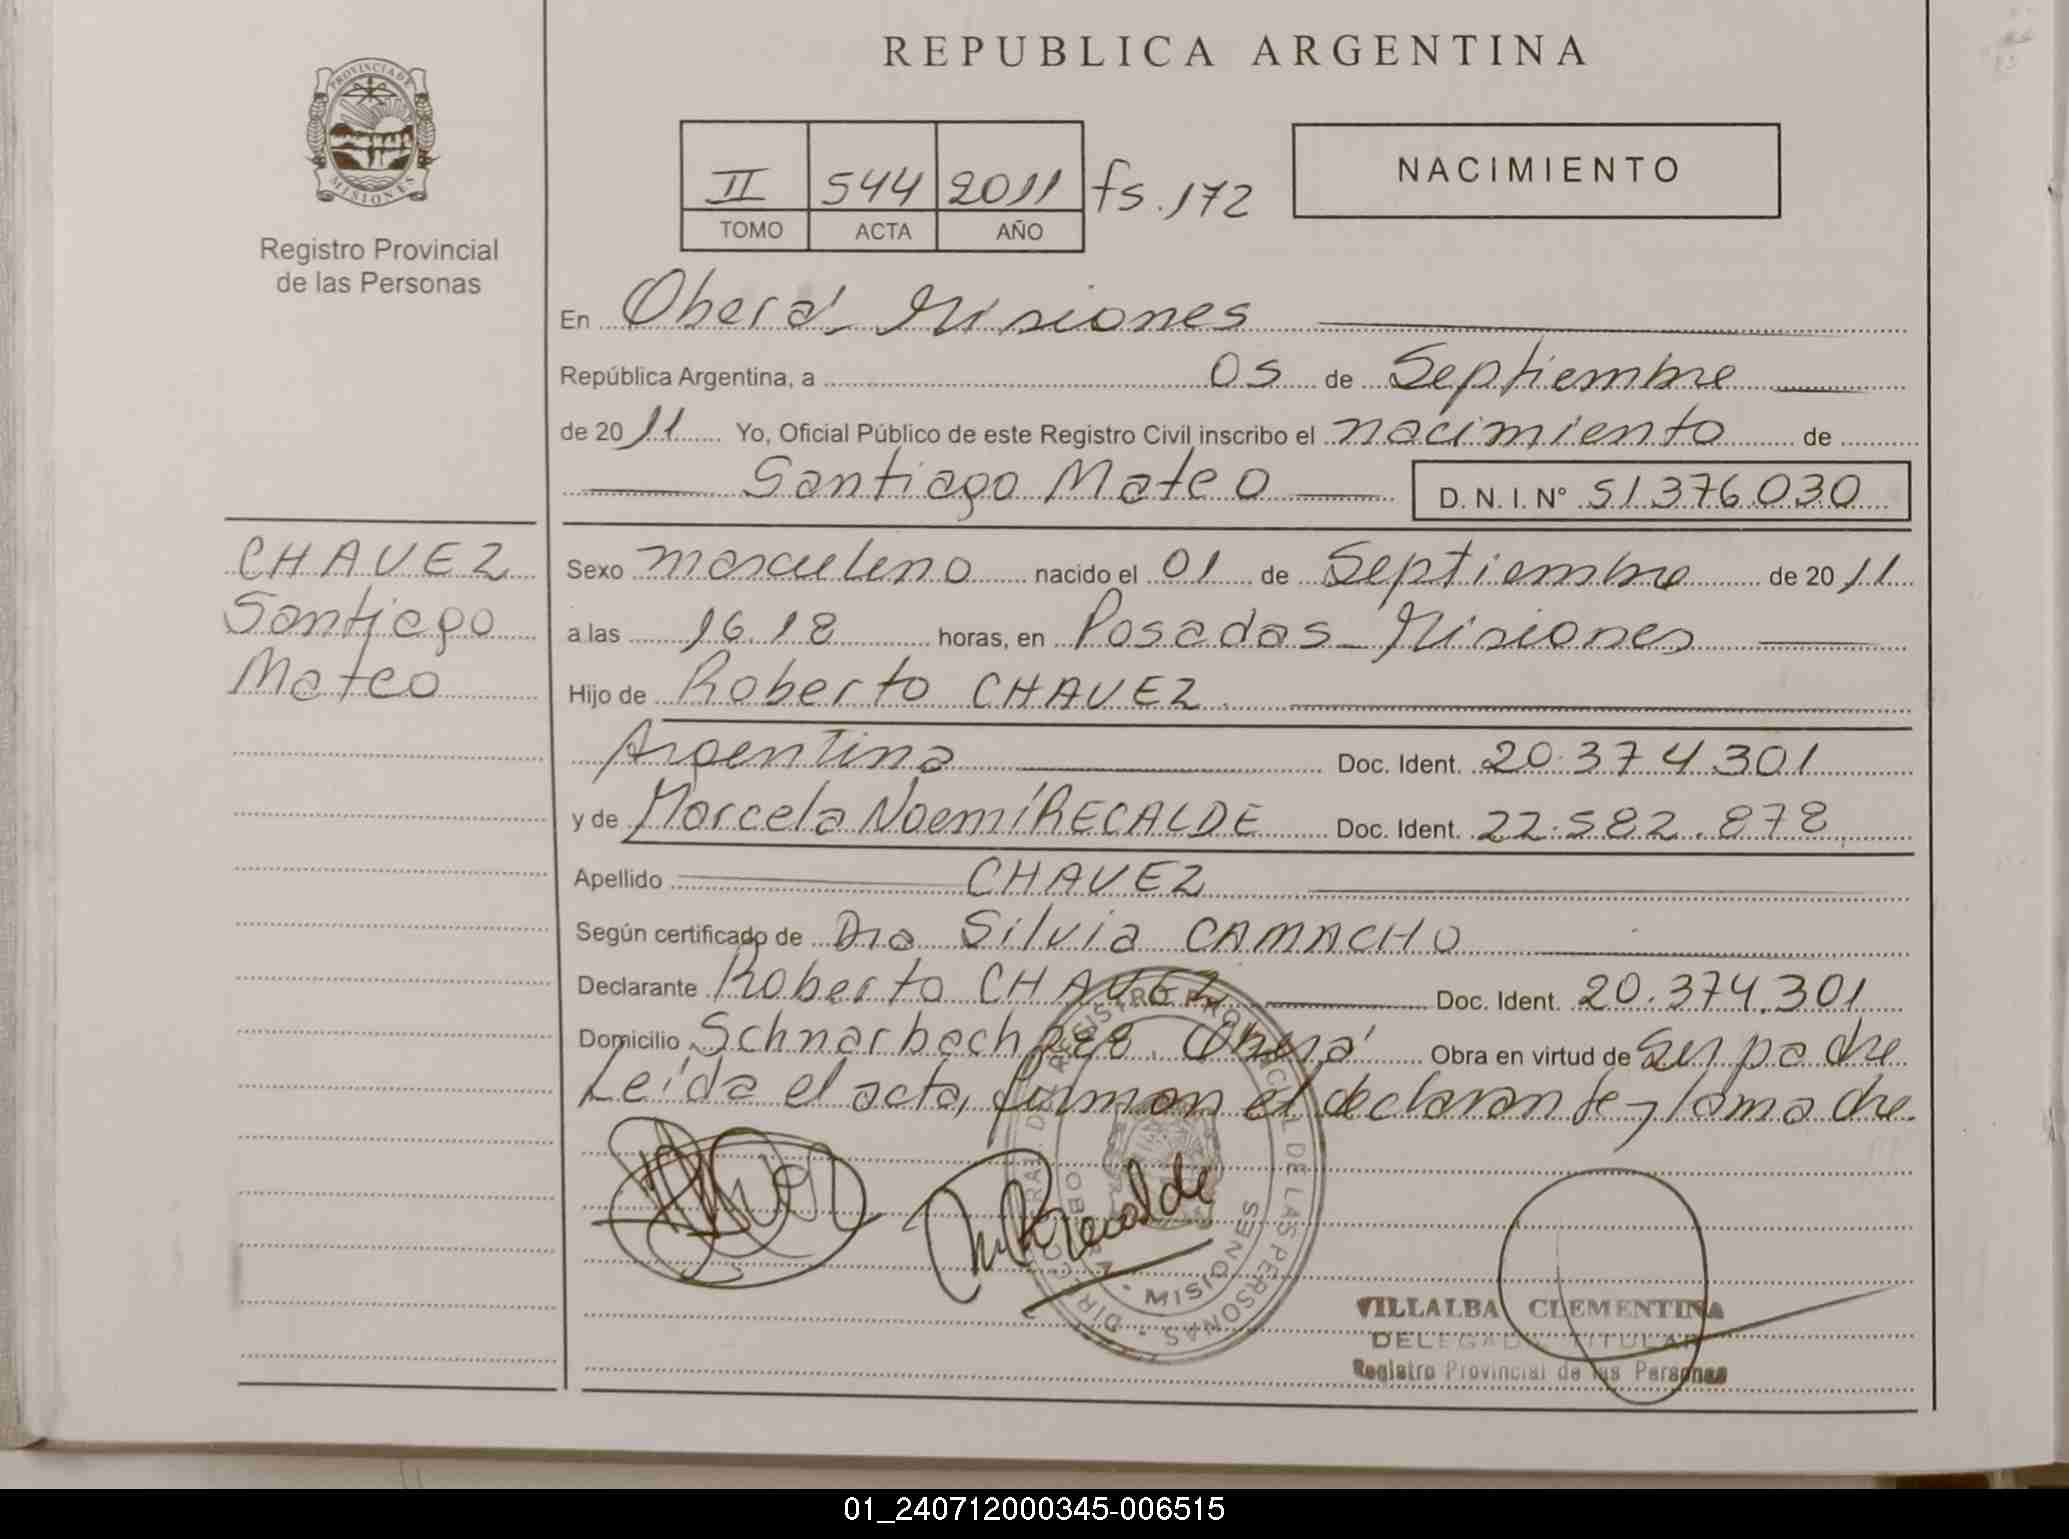 REPUBLICA ARGENTINA
PROVINCIA DE MISIONES
Registro Provincial
de las Personas
II 544 2011 fs. 172
TOMO ACTA AÑO
NACIMIENTO
En Oberá - Misiones
República Argentina, a 05 de Septiembre
de 2011 Yo, Oficial Público de este Registro Civil inscribo el nacimiento de
Santiago Mateo D. N. I. N° 51.376.030
CHAVEZ
Santiago
Mateo
Sexo masculino nacido el 01 de Septiembre de 2011
a las 16.18 horas, en Posadas - Misiones
Hijo de Roberto CHAVEZ.
Argentina Doc. Ident. 20.374.301
y de Marcela Noemí RECALDE Doc. Ident. 22.582.878
Apellido CHAVEZ
Según certificado de Dra Silvia CAMACHO
Declarante Roberto CHAVEZ Doc. Ident. 20.374.301
Domicilio Schnarbach 288. Oberá Obra en virtud de Ser padre
Leída el acta, firman el declarante y la madre.
M Recalde
REGISTRO PROVINCIAL DE LAS PERSONAS
MISIONES
VILLALBA CLEMENTINA
DELEGADA TITULAR
Registro Provincial de las Personas
01_240712000345-006515